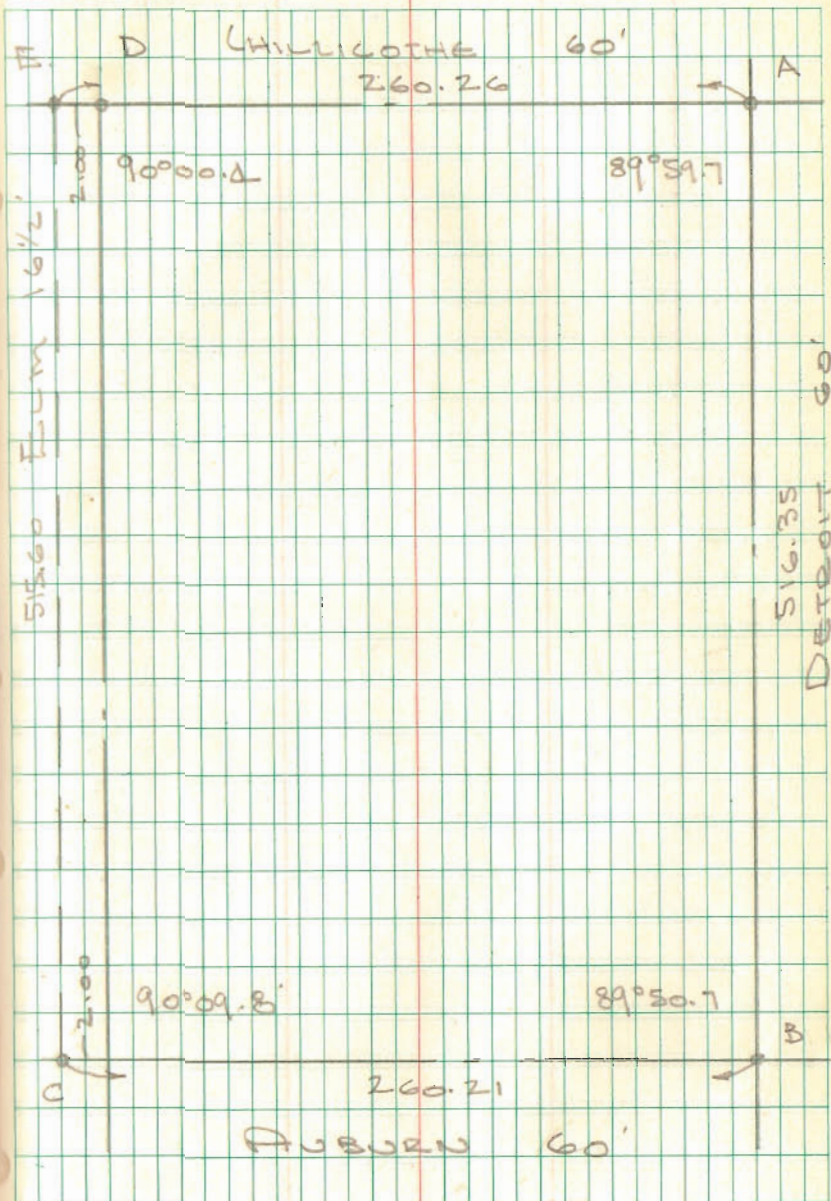 E D CHILLICOTHE 60' A
260.26
2.00 90°00.4 89°59.7
515.60 ELM 16½'
516.35
DETROIT 60'
2.00 90°09.8' 89°50.7
B
C 260.21
AUBURN 60'